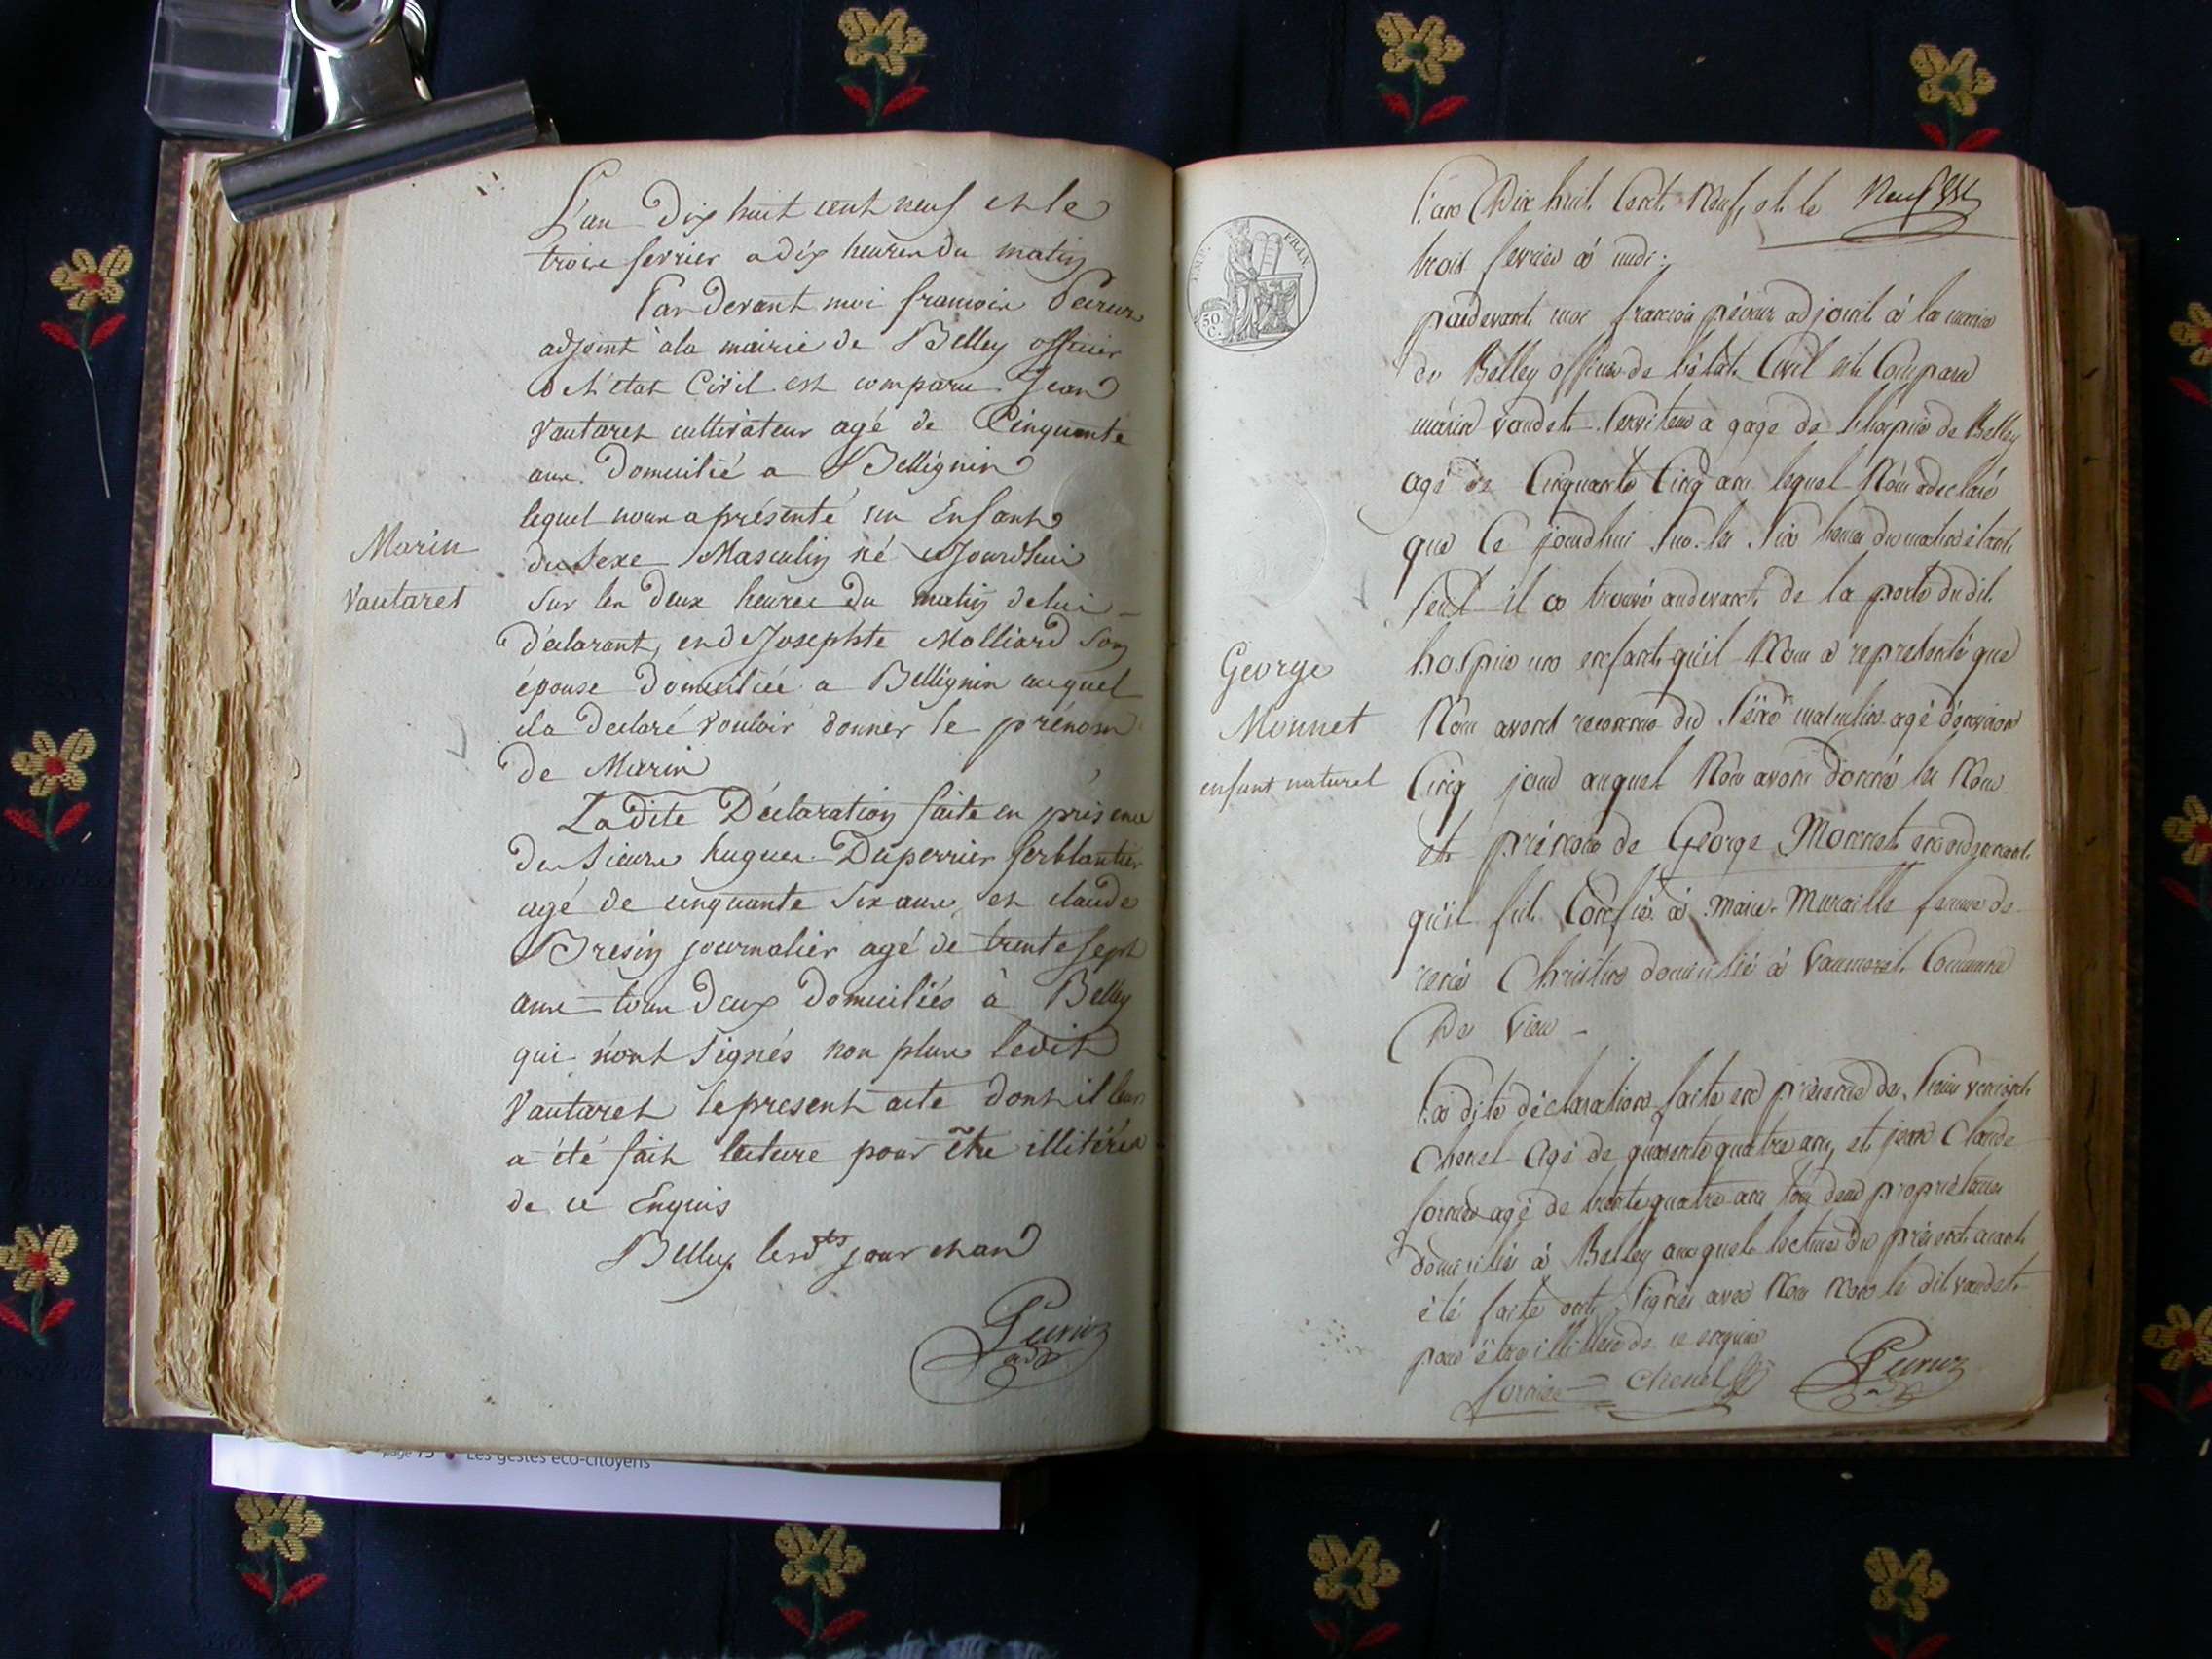 L'an Dix huit cent neuf et le
trois fevrier a dix heures du matin
Par Devant moi francois Peiruz
adjoint à la mairie de Belley officier
de l'etat Civil est comparu Jean
Vautaret cultivateur agé de Cinquante
ans Domicilié a Bellignin
lequel nous a présenté un Enfant
Marin
du Sexe Masculin né cejourdhui
Vautaret
Sur les Deux heures Du matin de lui
Déclarant, et de Josephte Molliard Son
épouse Domiciliée a Bellignin auquel
il a Declaré Vouloir donner le prénom
de Marin
La dite Déclaration faite en présence
des Sieurs hugues Duperrier ferblantier
agé de cinquante Six ans, et claude
Bresin journalier agé de trente Sept
ans tous Deux Domiciliés à Belley
qui n'ont Signés non plus ledit
Vautaret le present acte dont il leur
a été fait lecture pour être illitérés
de ce Enquis
Belley lesdts jour et an
Peiruz
adjt
L'an Dix huit Cent Neuf, et le Neuf
trois fevrier à midi :
IMP. FRAN.
50 C.
pardevant moi francois péiruz adjoint à la mairie
de Belley officier de l'état Civil est Comparu
marin vaudet Serviteur a gage de l'hospice de Belley
agé de Cinquante Cinq ans lequel Nous a declaré
que Ce jourdhui Sur les Six heures du matin étant
Seul il a trouvé audevant de la porte dudit
George
hospice un enfant qu'il Nous a représenté que
Monnet
Nous avons reconnu du Séxe masculin agé d'environ
enfant naturel
Cinq jours auquel Nous avons donné les Nom
et prénom de George Monnet en ordonnant
qu'il fut Confié à marie Muraille femme de
rené Christin domicilié à Vaumoret Commune
De Vieu
La dite déclaration faite en présence des Sieurs
Chenel agé de quarante quatre ans, et jean Claude
agé de trente quatre ans tous deux proprietaires
domiciliés à Belley auxquels lecture du présent ayant
été faite ont Signés avec Nous Non le dit vaudet
pour être illiteré de ce enquis
Chenel
Peiruz
page 75 • Les gestes éco-citoyens